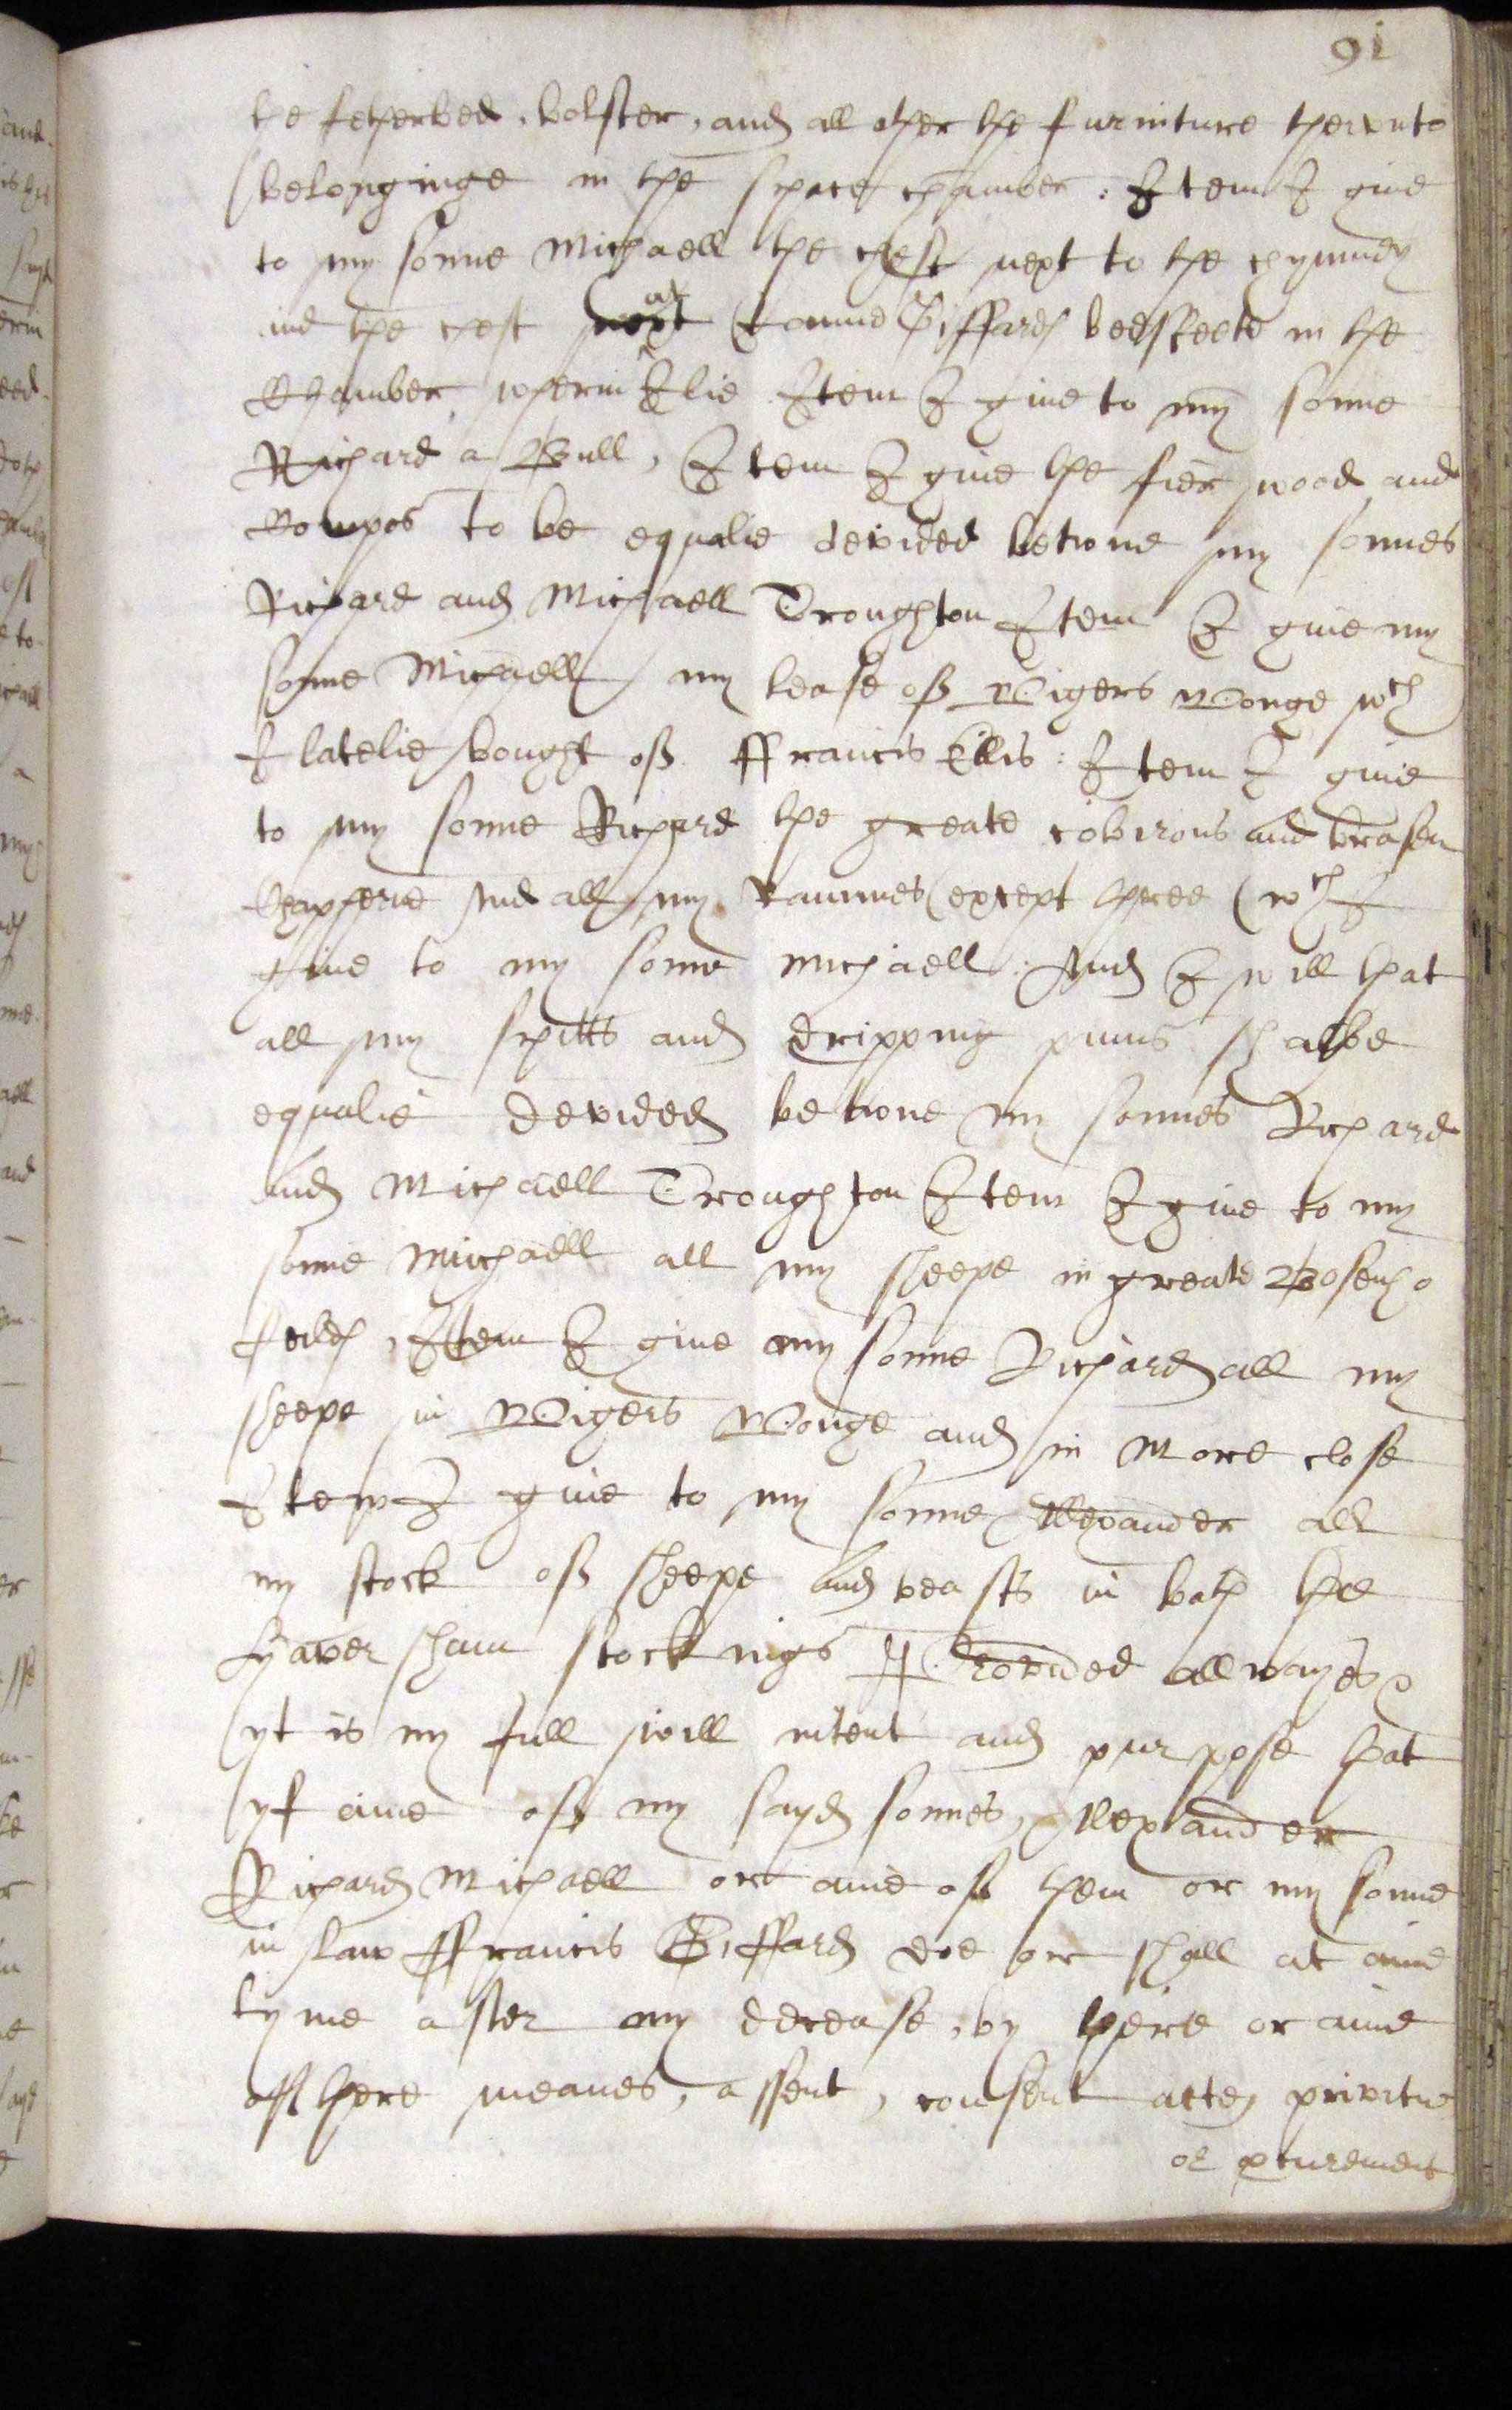 91
the fetherbed, bolster, and all other the furniture therunto
belonginge in the spare chamber : Item I give
to my sonne Michaell the chest next to the chymney
and the chest at Giffards bedsteede in the
Chamber wherin I lie Item I give to my sonne
Richard a Bull, Item I give the fier wood and
Compos to be equalie devided betwne my sonnes
Richard and Michaell Troughton Item I give my
sonne Michaell my lease off Wigers Wonge wch
I latelie bought off ffrancis Ellis : Item I give
to my sonne Richard the greate cobirons and brasen
Chafferne And all my rammes (except three (wch I
give to my sonne Michaell : And I will that
all my spitts and dripping panns shalbe
equalie devided betwne my sonnes Richard
and Michaell Troughton Item I give to my
sonne Michaell all my sheepe in greate Bosenho
feilds, Item I give my sonne Richard all my
sheepe in Wigers Wonge and in More close
Item I give to my sonne Allexander all
my stock off sheepe and beasts in both the
Haversham stockings Provided allwayes
yt is my full will intent and purpose that
yf anie off my sayd sonnes, Allexander
Richard Michaell or anie off them or my sonne
in law ffrancis Giffard doe or shall at anie
tyme after my decease, by there or anie
off there meanes, assent, consent privitie
or procurement